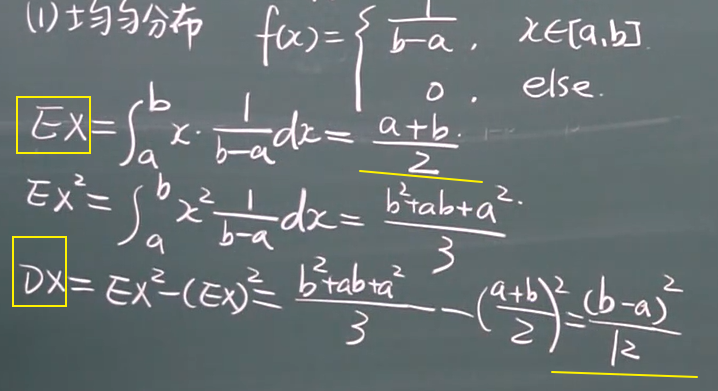 (1) 均匀分布 f(x)={ 1/(b-a), x∈[a,b].
0, else.
EX=∫_a^b x·1/(b-a)dx=(a+b)/2
EX²=∫_a^b x² 1/(b-a)dx=(b²+ab+a²)/3
DX=EX²-(EX)²=(b²+ab+a²)/3-((a+b)/2)²=(b-a)²/12